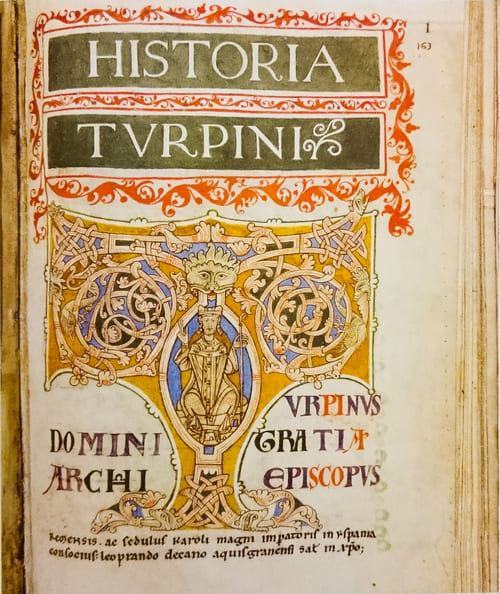 I
163
HISTORIA
TVRPINI
TVRPINVS
DOMINI GRATIA
ARCHI EPISCOPVS
Remensis. ac sedulus karoli magni impatoris in yspania
consocius: leoprando decano aquisgranensi sat̄ in xp̄o;